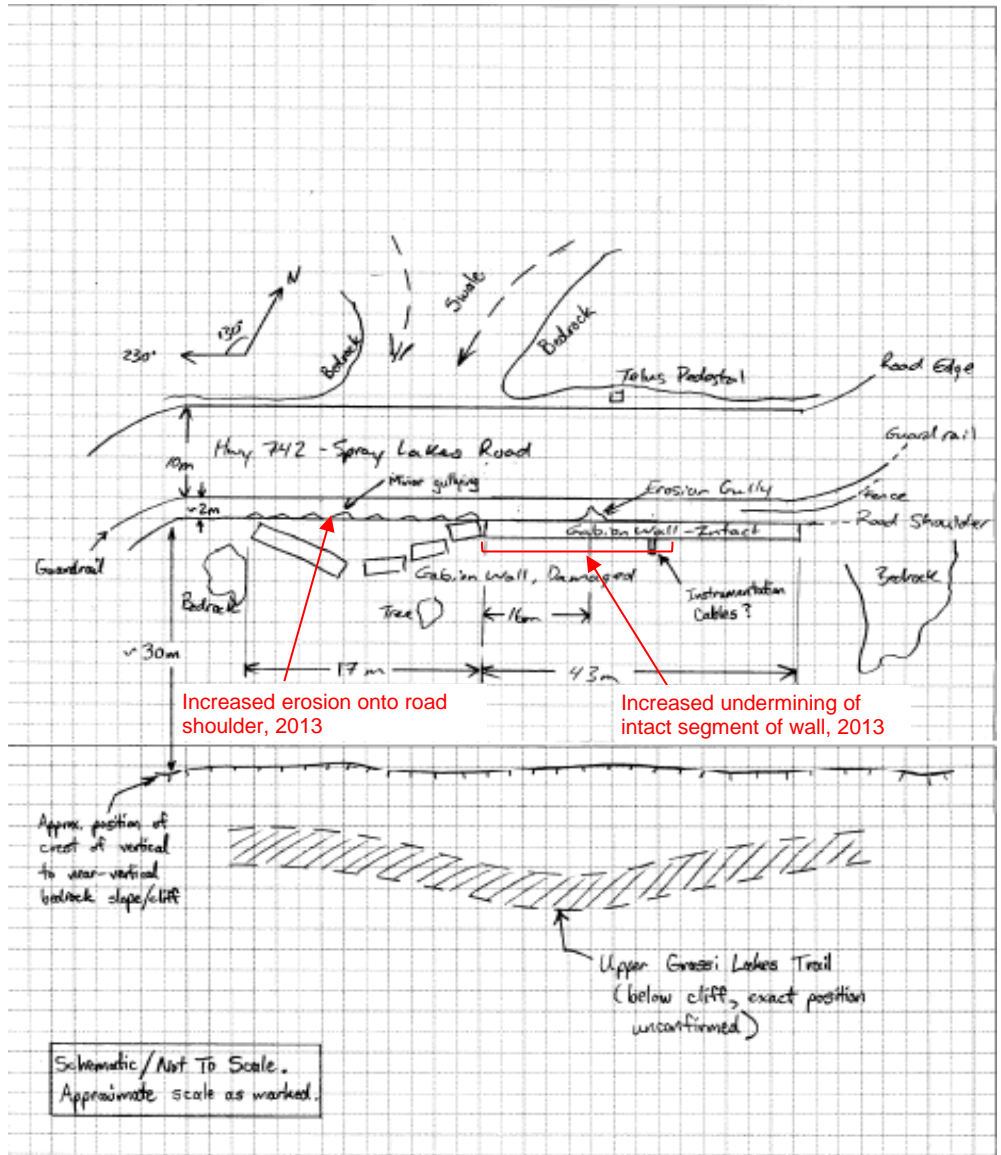 N
130°
230°
Bedrock
Swale
Bedrock
Telus Pedestal
Road Edge
Hwy 742 - Spray Lakes Road
10m
Guardrail
Minor gullying
Erosion Gully
Fence
~2m
Gabion Wall - Intact
Road Shoulder
Guardrail
Gabion Wall, Damaged
Bedrock
Instrumentation
Cables?
Bedrock
Tree
16m
~30m
17 m
43 m
Increased erosion onto road
shoulder, 2013
Increased undermining of
intact segment of wall, 2013
Approx. position of
crest of vertical
to near-vertical
bedrock slope/cliff
Upper Grassi Lakes Trail
(below cliff, exact position
unconfirmed)
Schematic/Not To Scale.
Approximate scale as marked.